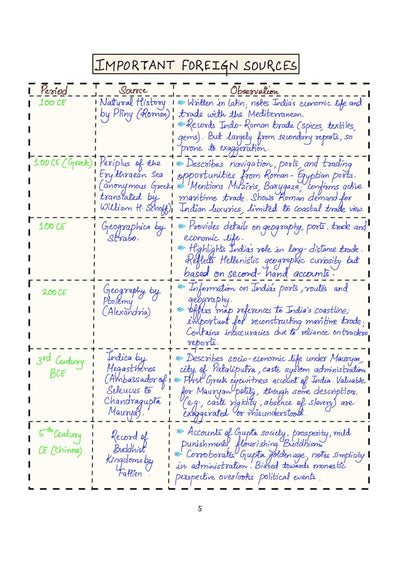 IMPORTANT FOREIGN SOURCES
Period
Source
Observation
100 CE
Natural History
by Pliny (Roman)
Written in Latin; notes India's economic life and
trade with the Mediterranean.
Records Indo-Roman trade (spices, textiles,
gems). But largely from secondary reports, so
prone to exaggeration.
100 CE (Greek)
Periplus of the
Erythraean Sea
(anonymous Greek
translated by
William H Schoff)
Describes navigation, ports, and trading
opportunities from Roman-Egyptian ports.
Mentions Muziris, Barygaza; confirms active
maritime trade. Shows Roman demand for
Indian luxuries, limited to coastal trade view.
100 CE
Geographica by
Strabo.
Provides details on geography, ports, trade and
economic life.
Highlights India's role in long-distance trade.
Reflects Hellenistic geographic curiosity but
based on second-hand accounts.
200 CE
Geography by
Ptolemy
(Alexandria)
Information on India's ports, routes and
geography.
Offers map references to India's coastline;
important for reconstructing maritime trade.
Contains inaccuracies due to reliance on traders
reports.
3rd Century
BCE
Indica by
Megasthenes
(Ambassador of
Seleucus to
Chandragupta
Maurya)
Describes socio-economic life under Mauryan,
city of Pataliputra, caste system, administration
First Greek eyewitness account of India. Valuable
for Mauryan polity, though some description.
(e.g., caste rigidity, absence of slavery) are
exaggerated or misunderstood
5th Century
CE (Chinese)
Record of
Buddhist
Kingdoms by
Fa Hien
Accounts of Gupta society, prosperity, mild
punishment, flourishing Buddhism
Corroborates Gupta golden age, notes simplicity
in administration. Biased towards monastic
perspective overlooks political events.
5